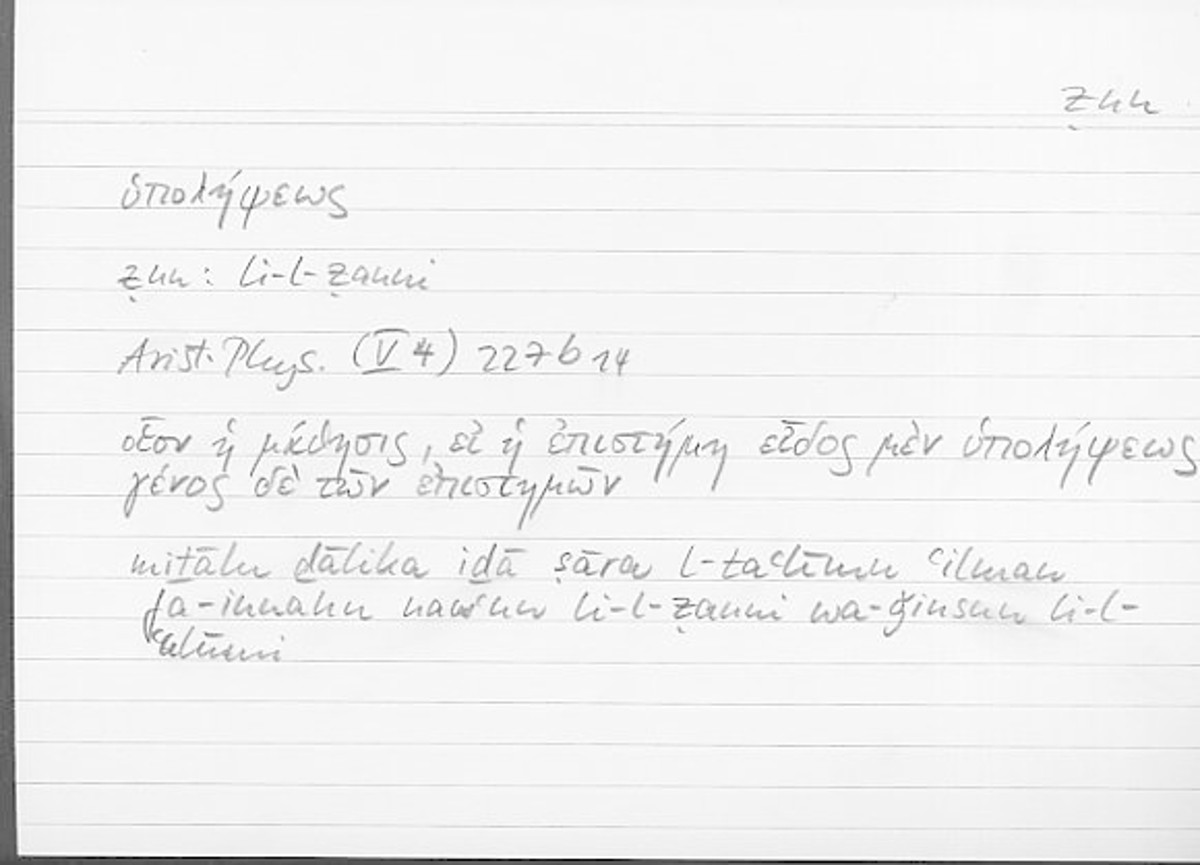 ẓnn
ὑπολήψεως
ẓnn: li-l-ẓanni
Arist. Phys. (V 4) 227 b 14
οἷον ἡ μάθησις, εἰ ἡ ἐπιστήμη εἶδος μὲν ὑπολήψεως
γένος δὲ τῶν ἐπιστημῶν
miṯālu ḏālika iḏā ṣāra l-taʿlīmu ʿilman
fa-innahu nawʿun li-l-ẓanni wa-ǧinsun li-l-
ʿulūmi